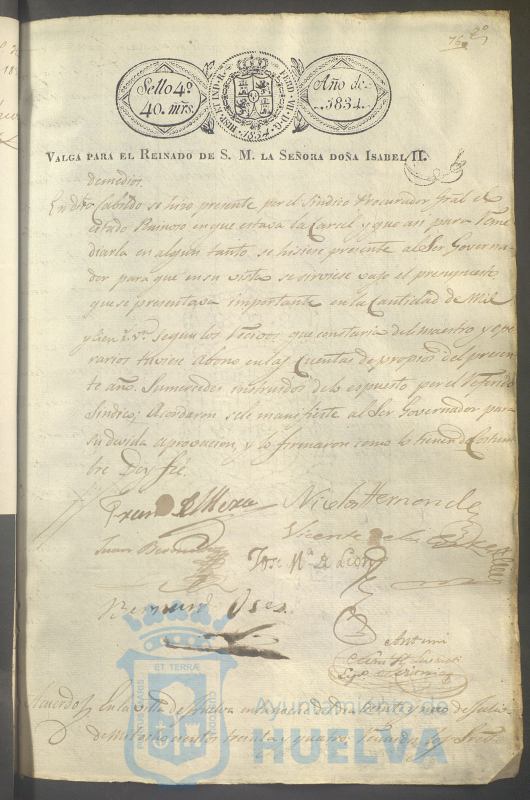 76
Sello 4º
40. mrs.
HISP. ET IND. R. FERD. VII. D. G.
1834
Año de
1834.
VALGA PARA EL REINADO DE S. M. LA SEÑORA DOÑA ISABEL II.
demedios.
En dho Cabildo se hizo presente por el Sindico Procurador gral el
estado Ruinoso en que estava la Carsel y que asi para Reme
diarla en algun tanto se hisiese presente al Sor Governa
dor para que en su vista se sirviese el presupuesto
que se presentava importante en la Cantidad de Mil
y Cien r.s v.n segun los Recivos que constaria del maestro y ope
rarios tuviese Abono en las Cuentas de propios del presen
te año. Sus mercedes instruidos de lo espuesto por el referido
Sindico; Acordaron se le manifieste al Sor Governador para
su devida aprovacion, y lo firmaron como lo tienen de Costum
bre Doy fé.
Nicolas Hernandez
Vicente de la
Juan
Jose Mª de Leon
Oses
Antoni
Acuerdo En la Villa de Huelva en de Julio
de mil ochocientos treinta y quatro: los Sres
ET TERRÆ
PORTUS MARIS
CUSTODIA
Ayuntamiento de
HUELVA